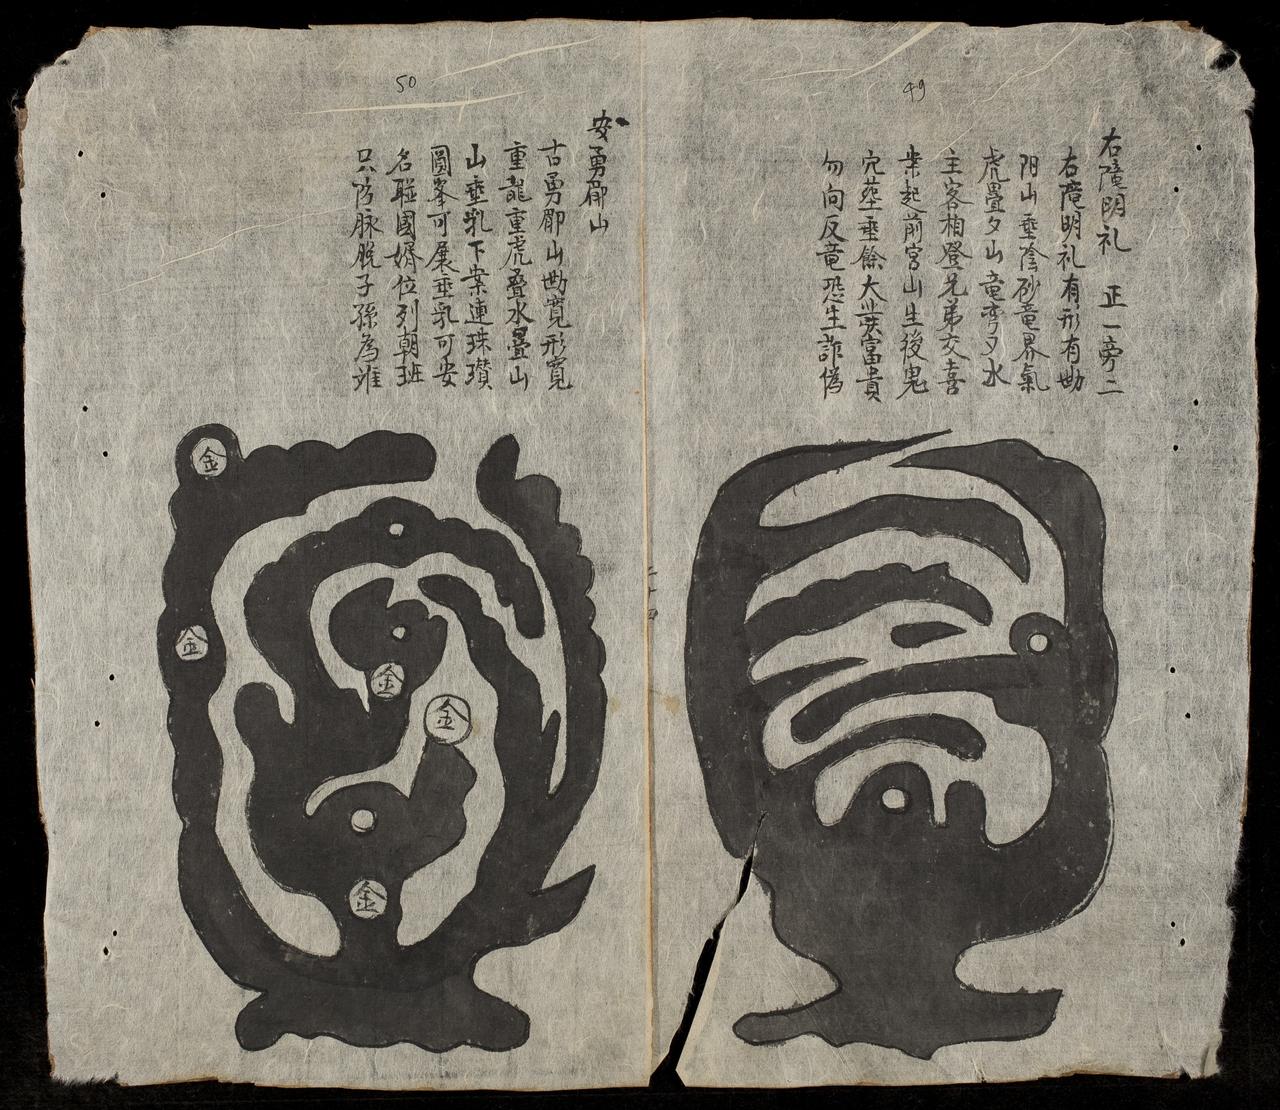 49
右庵明礼 正一旁二
右庵明礼有形有坳
阳山垂陰砂竜界氣
虎疊夕山竜弯夕水
主客相登兄弟交喜
案起前宮山生後鬼
穴塟垂餘大発富貴
勿向反竜恐生詐偽
50
安勇郡山
古勇郡山坳寬形寬
重龍重虎叠水疊山
山垂乳下案連珠瓚
圓峯可展垂乳可安
名聯國婿位列朝班
只防脉脱子孫為难
金
金
金
金
金